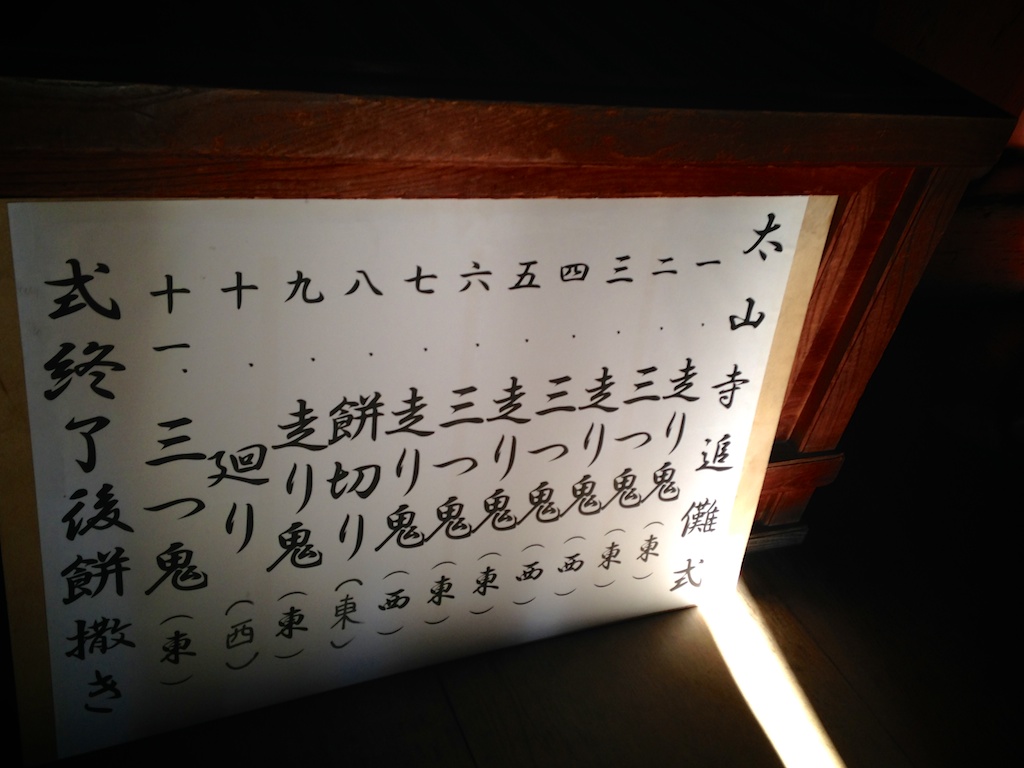 太山寺追儺式
一．走り鬼（東）
二．三つ鬼（東）
三．走り鬼（西）
四．三つ鬼（西）
五．走り鬼（東）
六．三つ鬼（東）
七．走り鬼（西）
八．餅切り（東）
九．走り鬼（東）
十．廻り（西）
十一．三つ鬼（東）
式終了後餅撒き